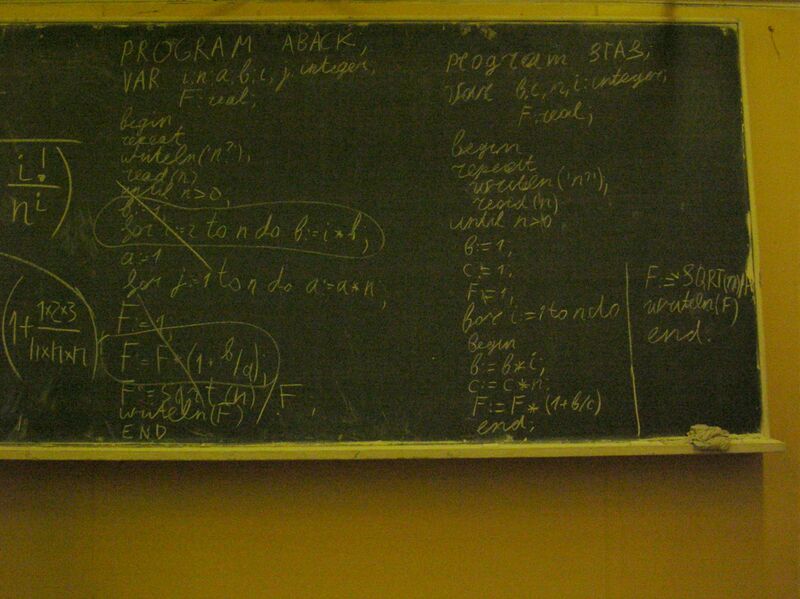 i!
n^i
(1+ 1×2×3
n×n×n
PROGRAM ABACK;
VAR i, n, a, b, c, j: integer;
F: real;
begin
repeat
writeln('n?');
read(n)
until n>0;
b:=1
for i:=2 to n do b:=i*b;
a:=1
for j:=1 to n do a:=a*n;
F:=1;
F:=F*(1+b/a);
F:=sqrt(n)/F;
writeln(F)
END
program STAS;
Var b, c, n, i: integer;
F: real;
begin
repeat
writeln('n?');
read(n)
until n>0
b:=1;
c:=1;
F:=1;
for i:=1 to n do
begin
b:=b*i;
c:=c*n;
F:=F*(1+b/c)
end;
writeln(F)
end.